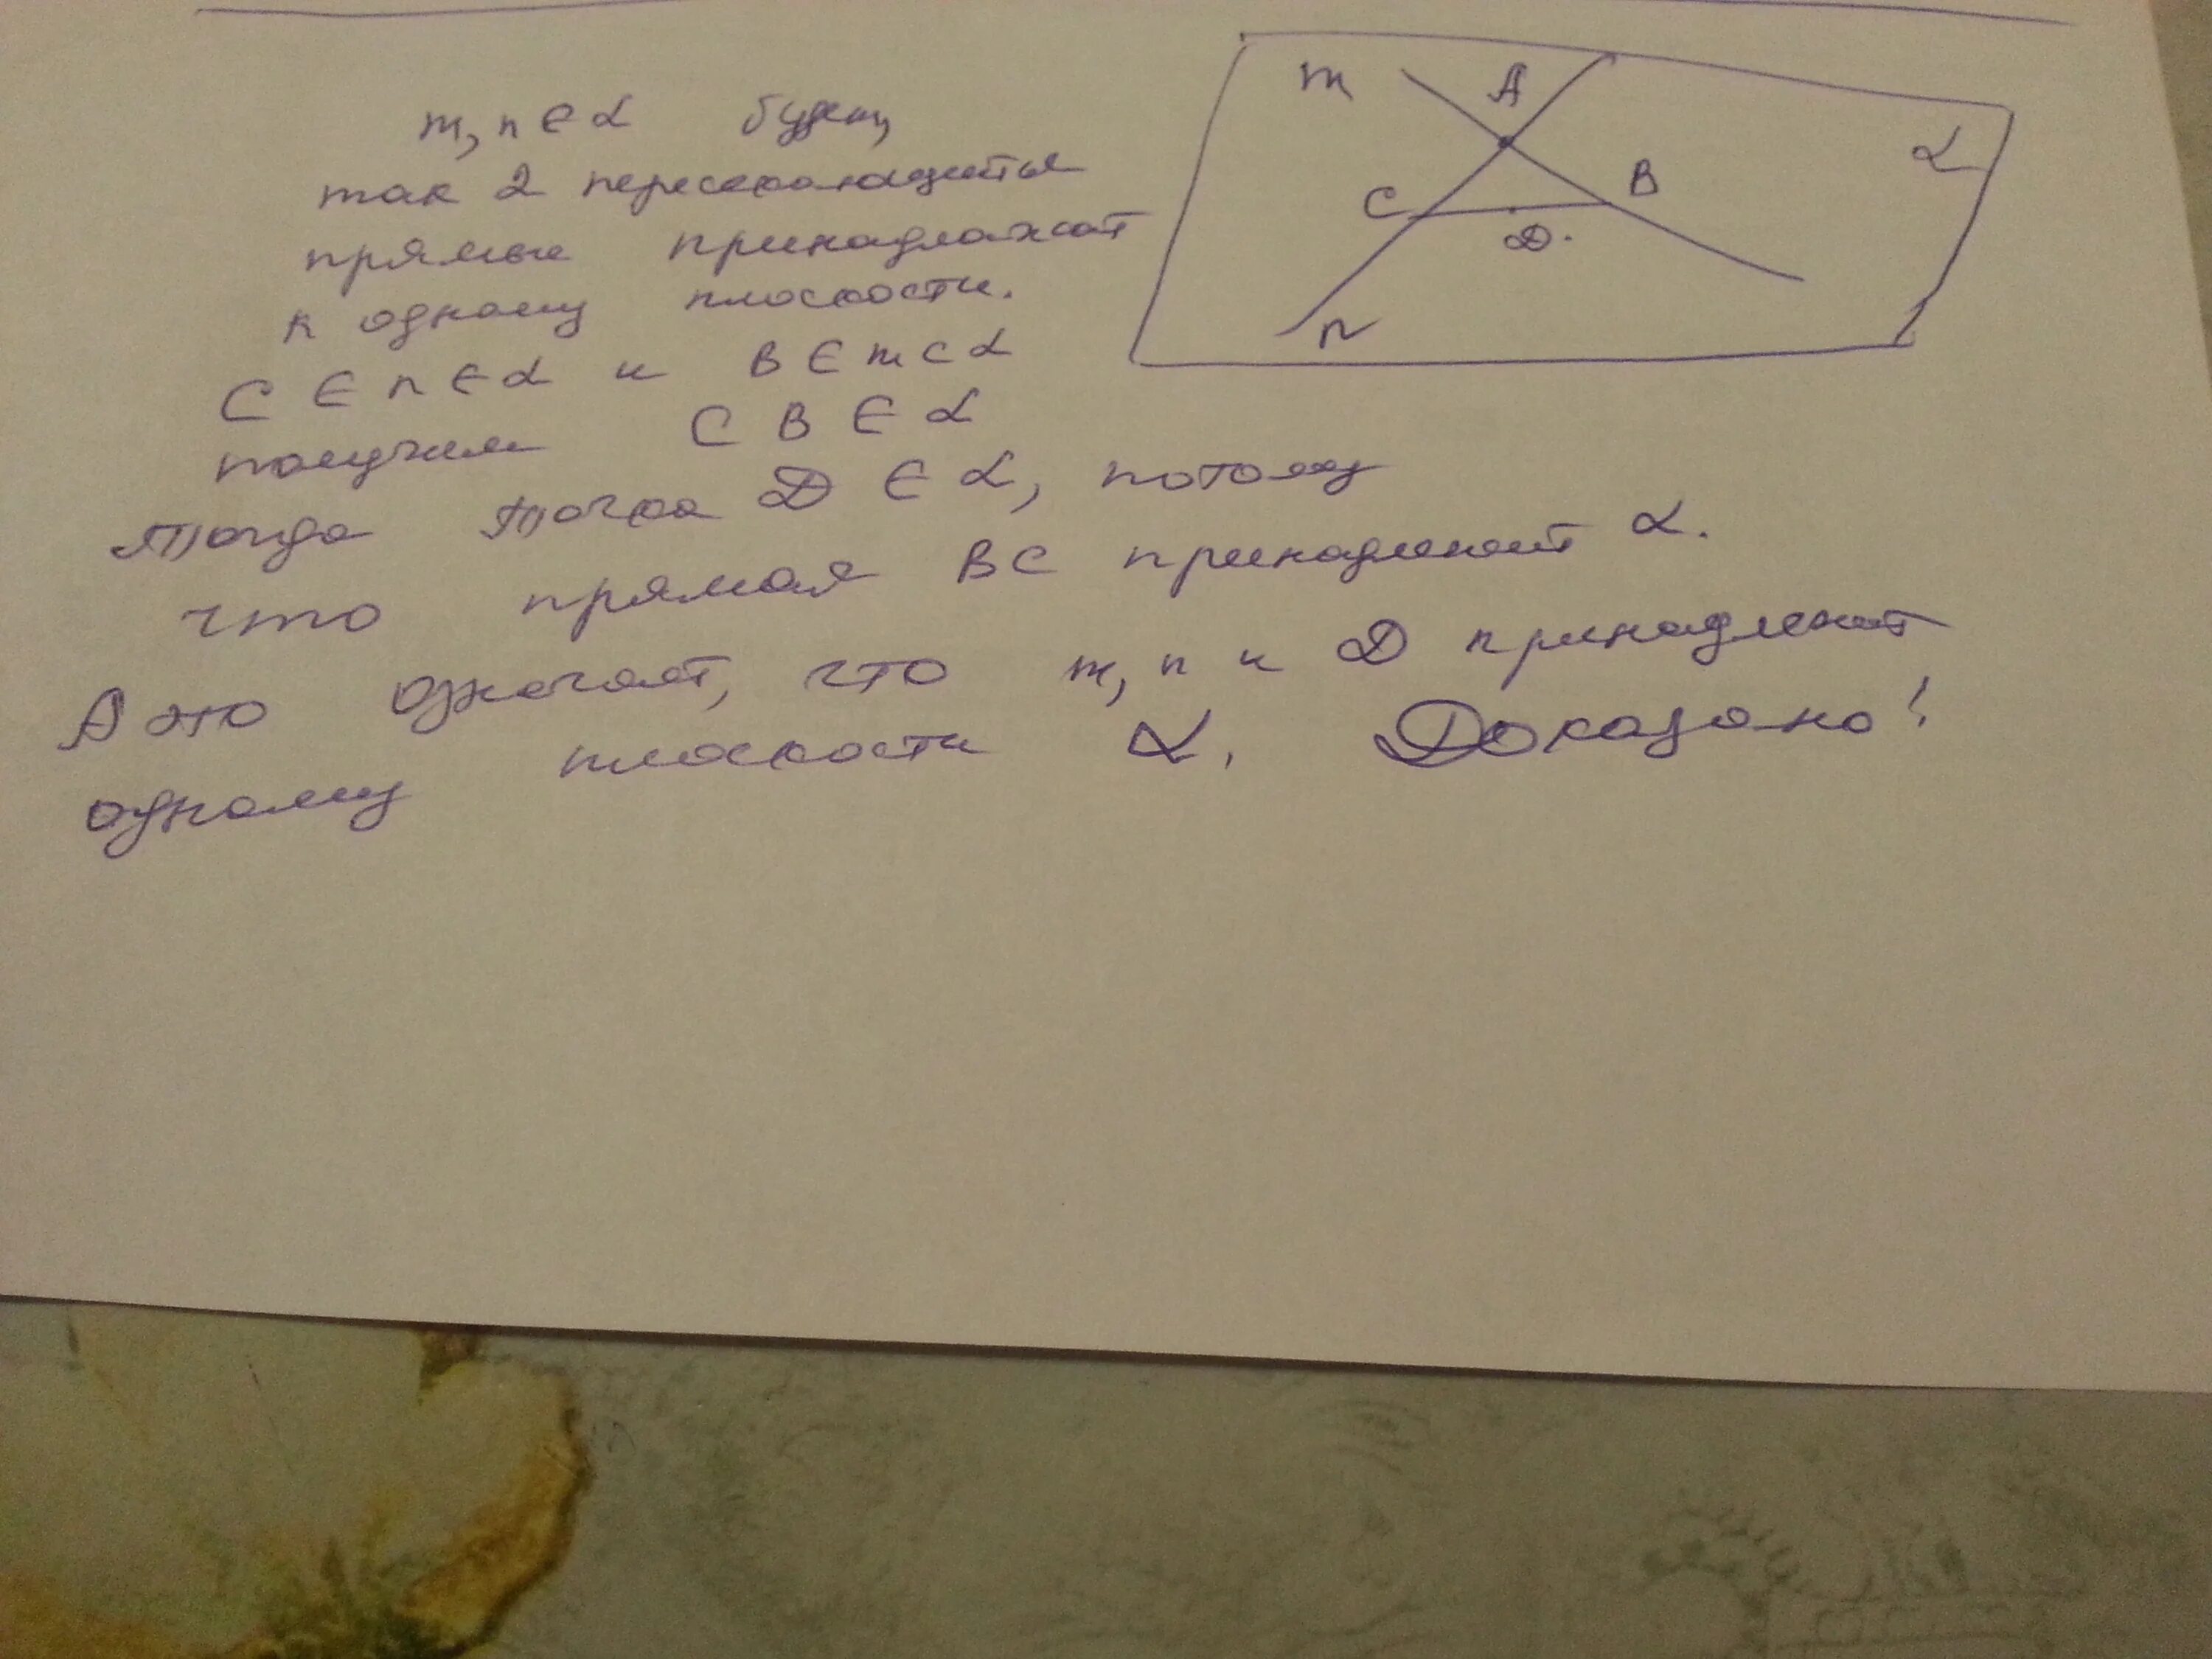 m, n ∈ α будет,
так 2 пересекающиеся
прямые принадлежат
к одному плоскости.
C ∈ n ∈ α и B ∈ m ⊂ α
получим CB ∈ α
Тогда точка D ∈ α, потому
что прямая BC принадлежит α.
А это означает, что m, n и D принадлежат
одному плоскости α. Доказано!
m
A
α
B
C
D.
n